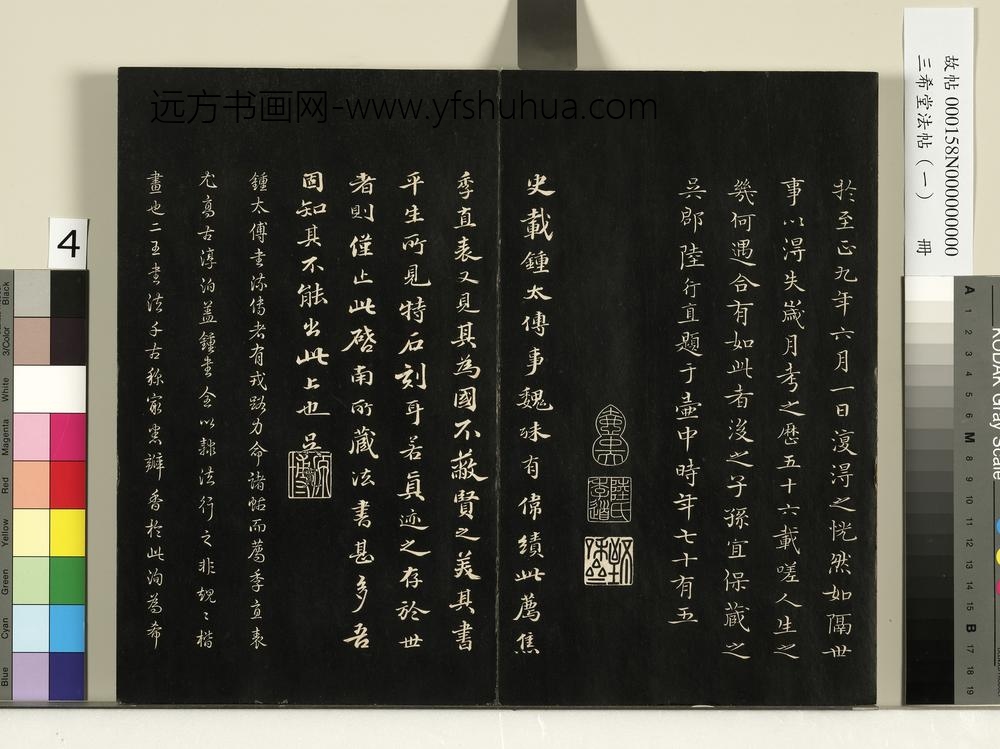 於至正九年六月一日復得之恍然如隔世
事以得失歲月考之歷五十六載嗟人生之
幾何遇合有如此者後之子孫宜保藏之
吳郡陸行直題于壺中時年七十有五
陸氏
史載鍾太傅事魏殊有偉績此薦焦
季直表又見其為國不蔽賢之美其書
平生所見特石刻耳若真迹之存於世
者則僅止此啓南所藏法書甚多吾
固知其不能出此上也 吳寬
原博
鍾太傅書流傳者有戎路力命諸帖而薦季直表
尤高古淳泊蓋鍾書全以隸法行之非規之楷
畫也二王書法千古稱宗實瓣香於此洵為希
远方书画网-www.yfshuhua.com
故帖 000158N000000000000
三希堂法帖（一） 册
4
Black
3/Color
White
Magenta
Red
Yellow
Green
Cyan
Blue
KODAK Gray Scale
A 1 2 3 4 5 6 M 8 9 10 11 12 13 14 15 B 17 18 19